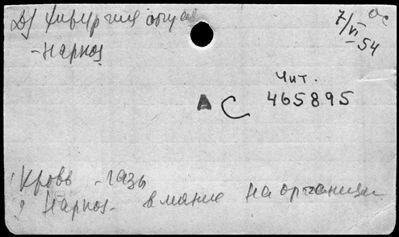 Д/ Хирургия
ос
7/VI-54
-Наркоз
Чит.
А С 465895
Кровь -газы
Наркоз- влияние на организм